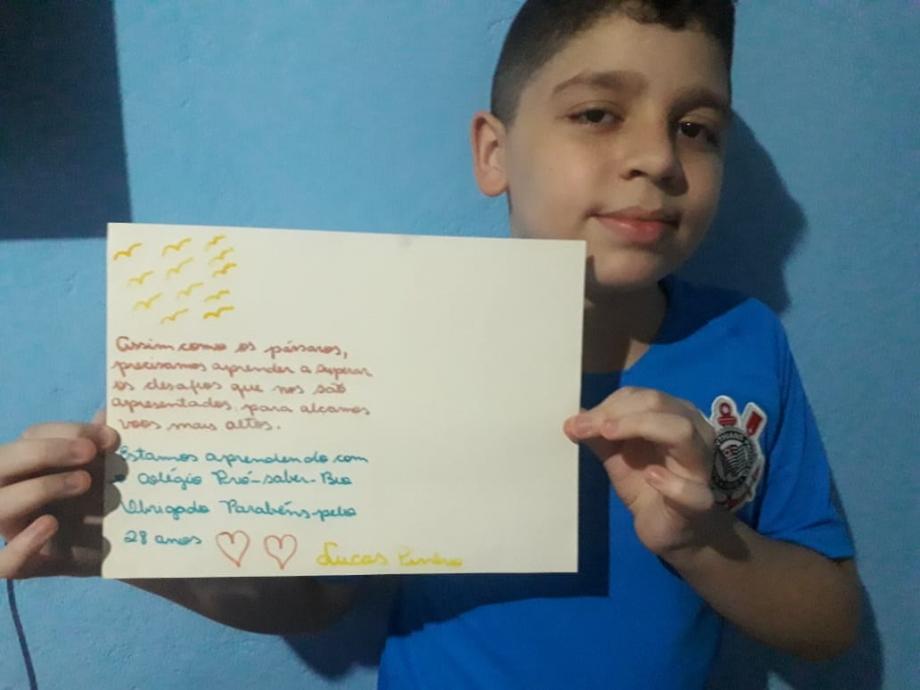 Assim como os pássaros,
precisamos aprender a superar
os desafios que nos são
apresentados para alcamos
voos mais altos.
Estamos aprendendo com
o Colégio Pró-saber-Bio
Obrigado Parabéns pelo
28 anos
Lucas